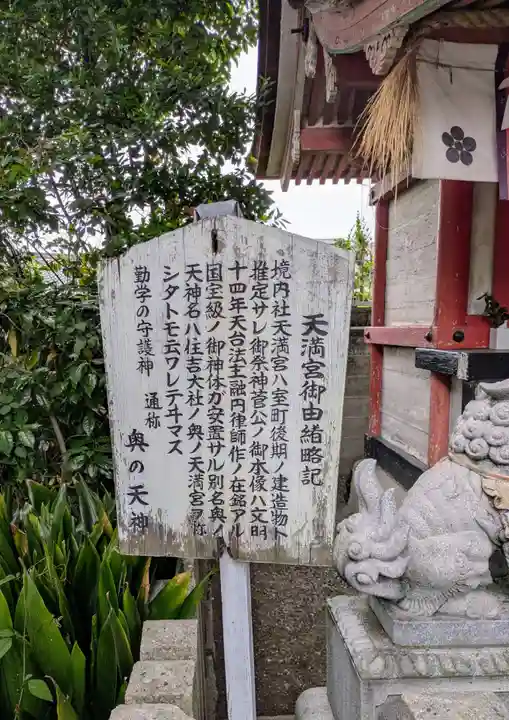 天満宮御由緒略記
境内社天満宮ハ室町後期ノ建造物ト
推定サレ御祭神菅公ノ御本像ハ文明
十四年天台法主融円律師作ノ在銘アル
国宝級ノ御神体ガ安置サル別名奥ノ
天神名ハ住吉大社ノ奥ノ天満宮ヲ称
シタトモ云ワレテヰマス
勤学の守護神
通称 奥の天神